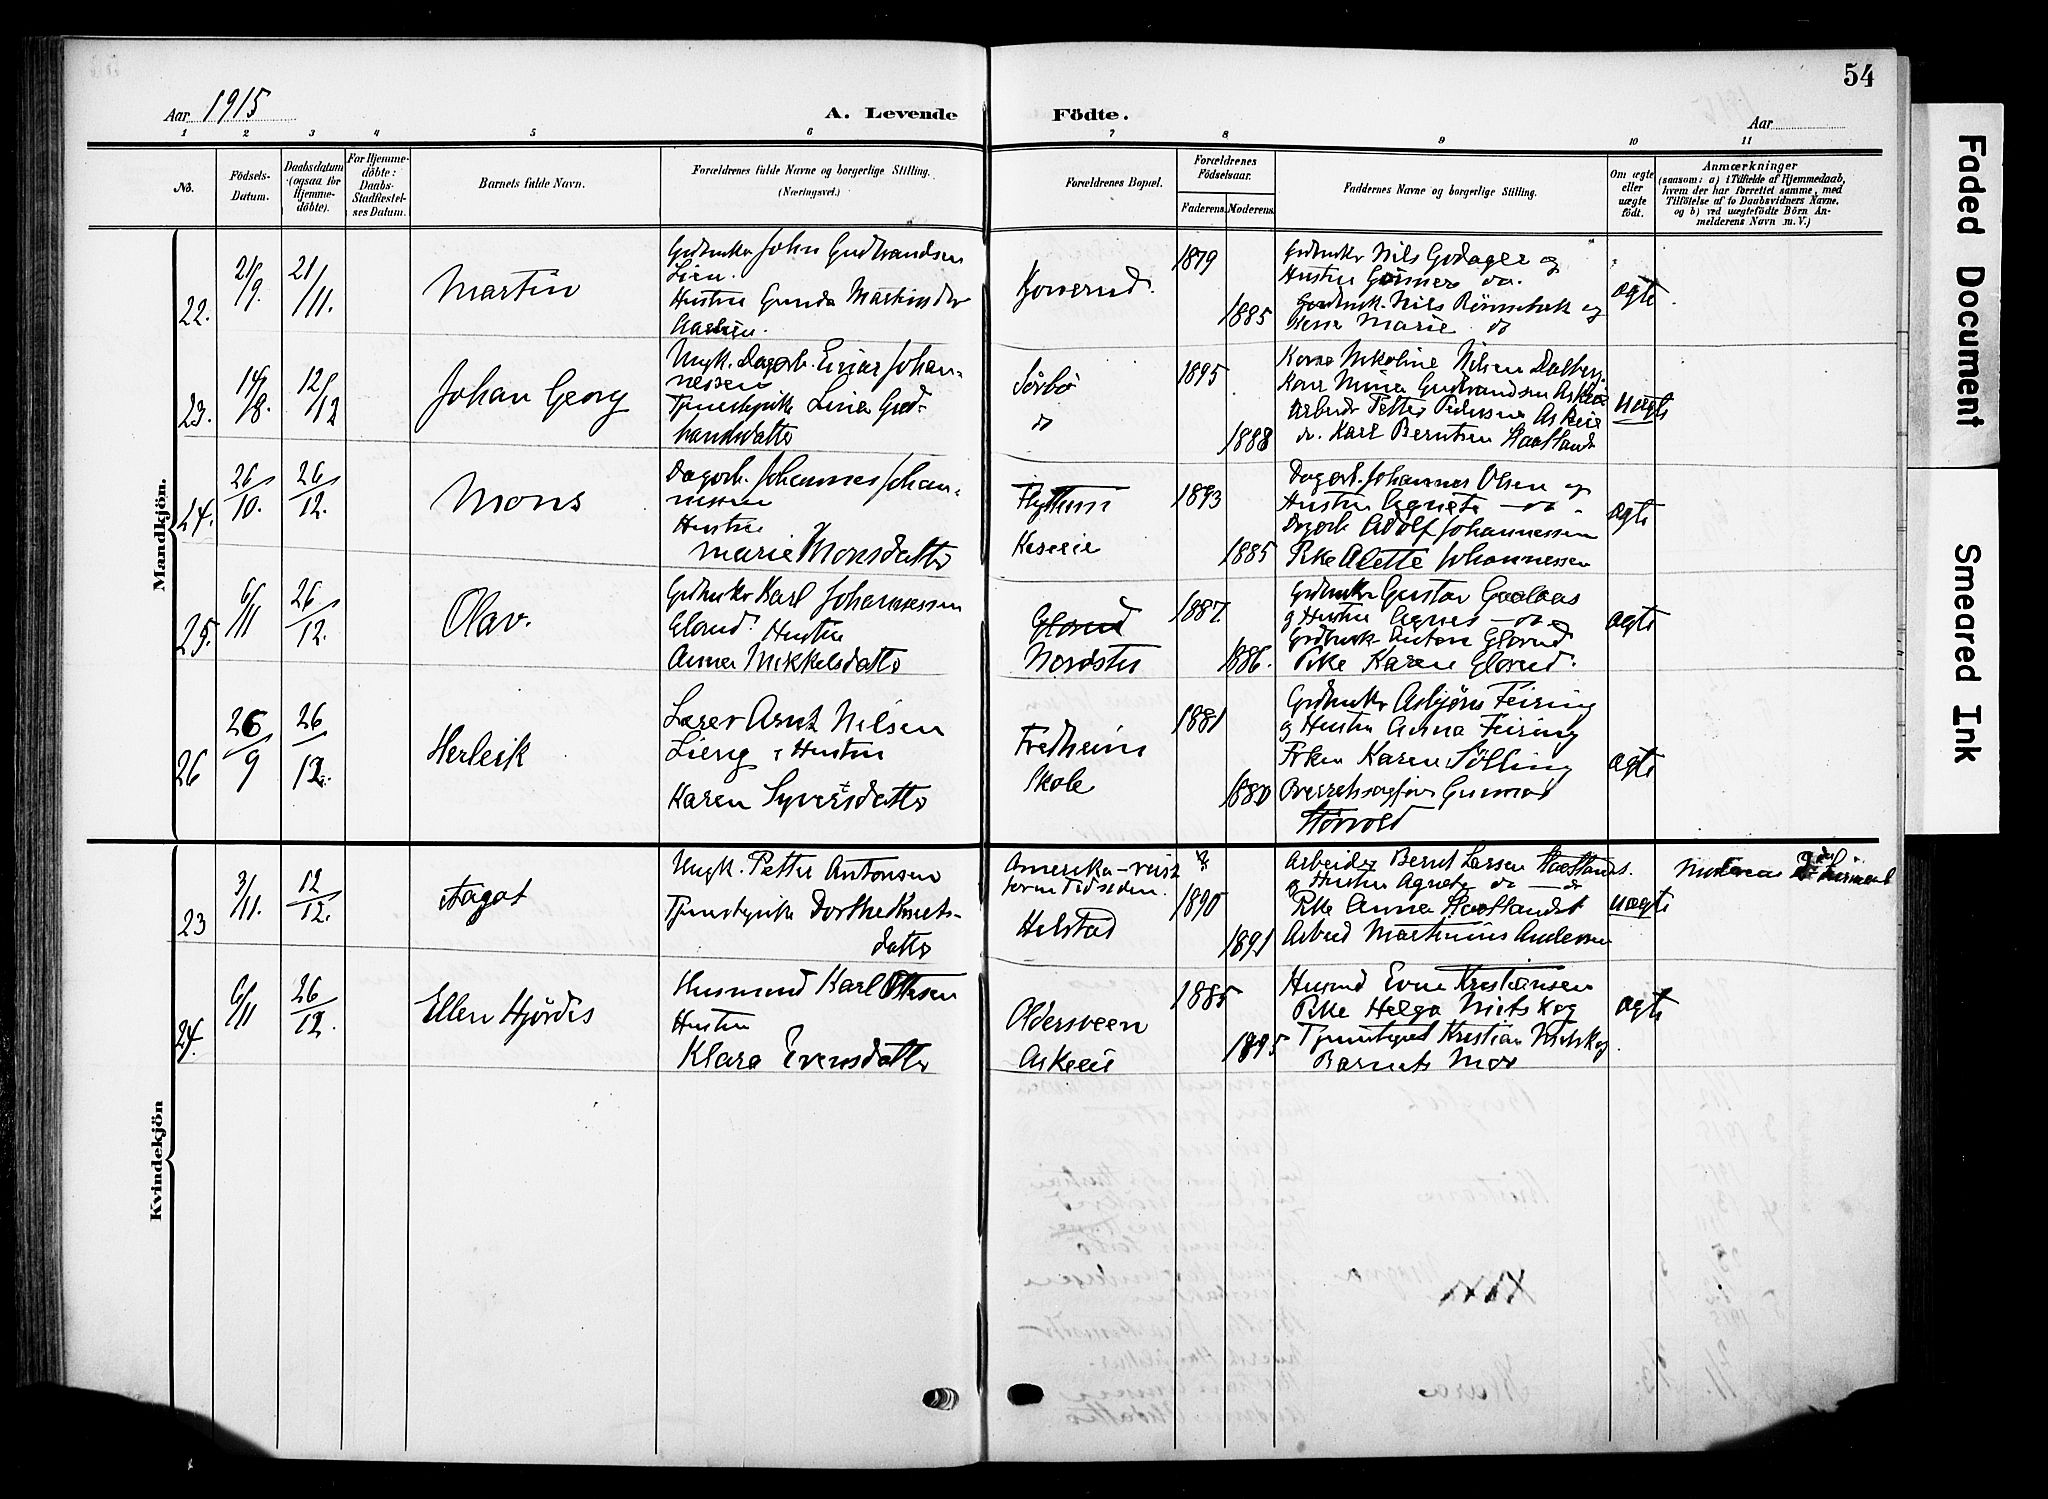 54
Aar 1915
A. Levende
Födte.
Aar
1 2 3 4 5 6 7 8 9 10 11
No.
Födsels-Datum.
Daabsdatum (ogsaa for Hjemmedöbte).
For Hjemmedöbte: Daabs-Stadfæstelses Datum.
Barnets fulde Navn.
Forældrenes fulde Navne og borgerlige Stilling.
(Næringsvei.)
Forældrenes Bopæl.
Forældrenes Födselsaar.
Faderens. Moderens.
Faddernes Navne og borgerlige Stilling.
Om ægte eller uægte födt.
Anmærkninger
(saasom: a) i Tilfælde af Hjemmedaab,
hvem der har forrettet samme, med
Tilföielse af to Daabsvidners Navne,
og b) ved uægtefödte Börn An-
melderens Navn m. V.)
Mandkjön.
22.
21/9.
21/11.
Martin
Grdbruker John Gudbrandsen
Lien.
Hustru Gunda Martinsdtr
1879
1885
Grdbruker Nils Godager og
Hustru
Gardbruk. Nils
Marie do
ægte
23.
14/8.
12/12
Johan Georg
Ungk. Dagarb. Einar Johan-
nessen
Tjenestepike Lina Gud-
brandsdatter
Sörbö
do
1895
1888
Kone Nikoline Nilsen Dalberg
Kone Mina Gudbrandsen Askeie
Arbeider Petter Pedersen Askeie
do. Karl Berntsen Haatland
uægte
24.
26/10.
26/12.
Mons
Dagarb. Johannes Johan-
nessen
Hustru
Marie Monsdatter
Flyttum
1893
1885
Dagarb. Johannes Olsen og
Hustru Agnete do
Dagarb Adolf Johannessen
Pike Alette Johannessen
ægte
25.
6/11
26/12.
Olav.
Grdbruker Karl Johannessen
Glorud. Hustru
Anna Mikkelsdatter
Glorud
Nordstu
1887.
1886.
Grdbruker Gustav
og Hustru Agnes do og
Grdbruk. Anton Glorud
Pike Karen Glorud.
ægte
26
26/9
26/12.
Herleik
Lærer Arnt Nilsen
Lieng & Hustru
Karen Syversdatter
Fredheim
Skole
1881
1880
Grdbruker Asbjörn Feiring
og Hustru Anna Feiring
Frken Karen Sölling
Overretssagförer Gunnar
Storvold
ægte
Kvindekjön
23
3/11.
12/12.
Aagot
Ungk. Petter Antonsen
Tjenestepike Dorthe Knuts-
datter
Amerika-reist
for en Tid siden.
Helstad
1890
1891
Arbeider Bernt Larsen Haatland.
og Hustru Agnete do
Pike Anna Haatland
Arbeid Martinius Andersen
uægte
Moderen
24.
6/11
26/12.
Ellen Hjördis
Husmand Karl Olsen
Hustru
Klara Evensdatter
Oldersveen
Askeeie
1885
1895
Husmd Even Kristiansen
Pike Helga Nietskog
Tjenestegut Kristian Nietskog.
Barnets Mor
ægte
Faded Document
Smeared Ink